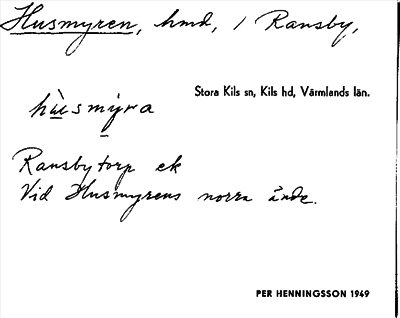 Husmyren, hmd, / Ransby,
Stora Kils sn, Kils hd, Värmlands län.
hùsmỳra
Ransbytorp ek
Vid Husmyrens norra ände.
PER HENNINGSSON 1949